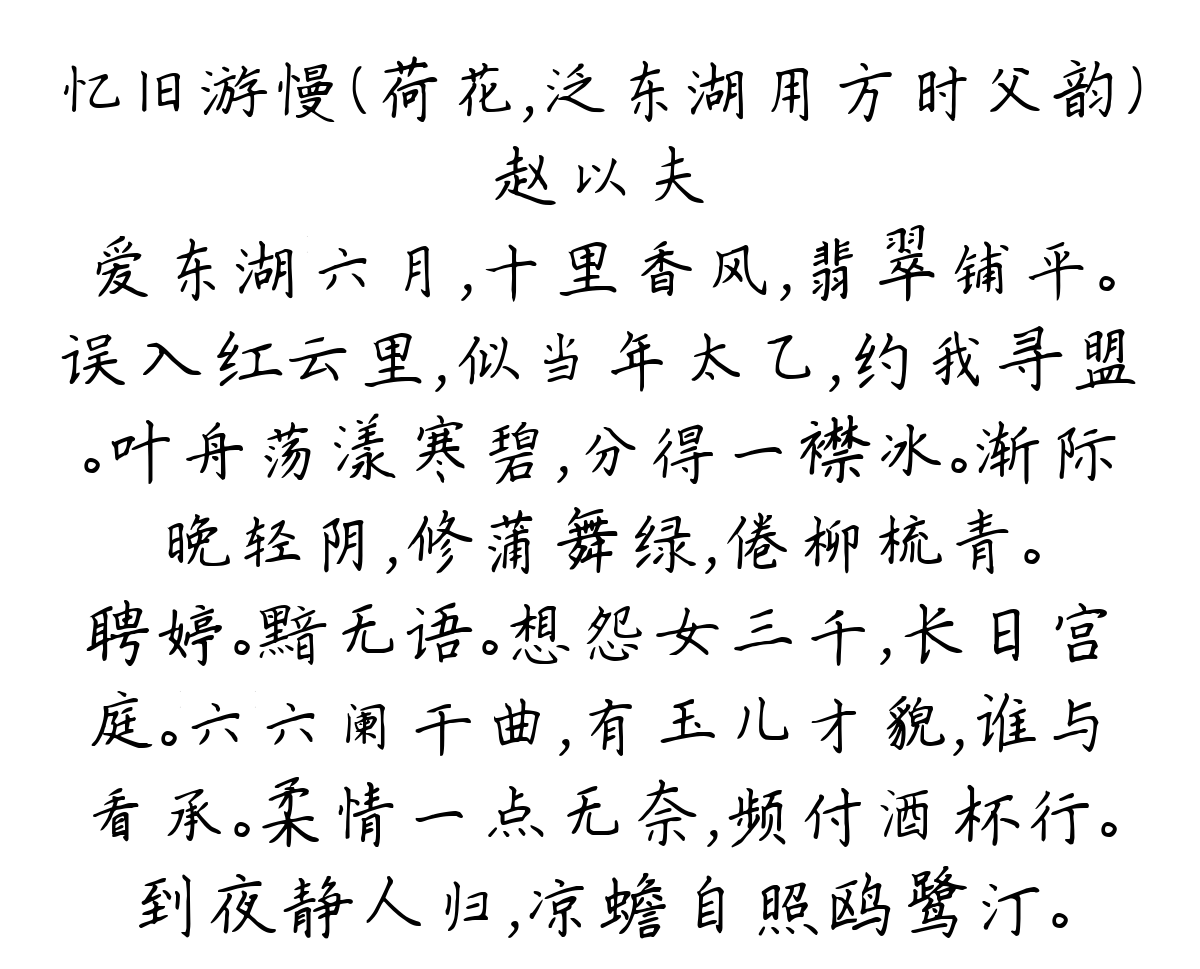 忆旧游慢(荷花,泛东湖用方时父韵)
赵以夫
爱东湖六月,十里香风,翡翠铺平。
误入红云里,似当年太乙,约我寻盟
。叶舟荡漾寒碧,分得一襟冰。渐际
晚轻阴,修蒲舞绿,倦柳梳青。
聘婷。黯无语。想怨女三千,长日宫
庭。六六阑干曲,有玉儿才貌,谁与
看承。柔情一点无奈,频付酒杯行。
到夜静人归,凉蟾自照鸥鹭汀。